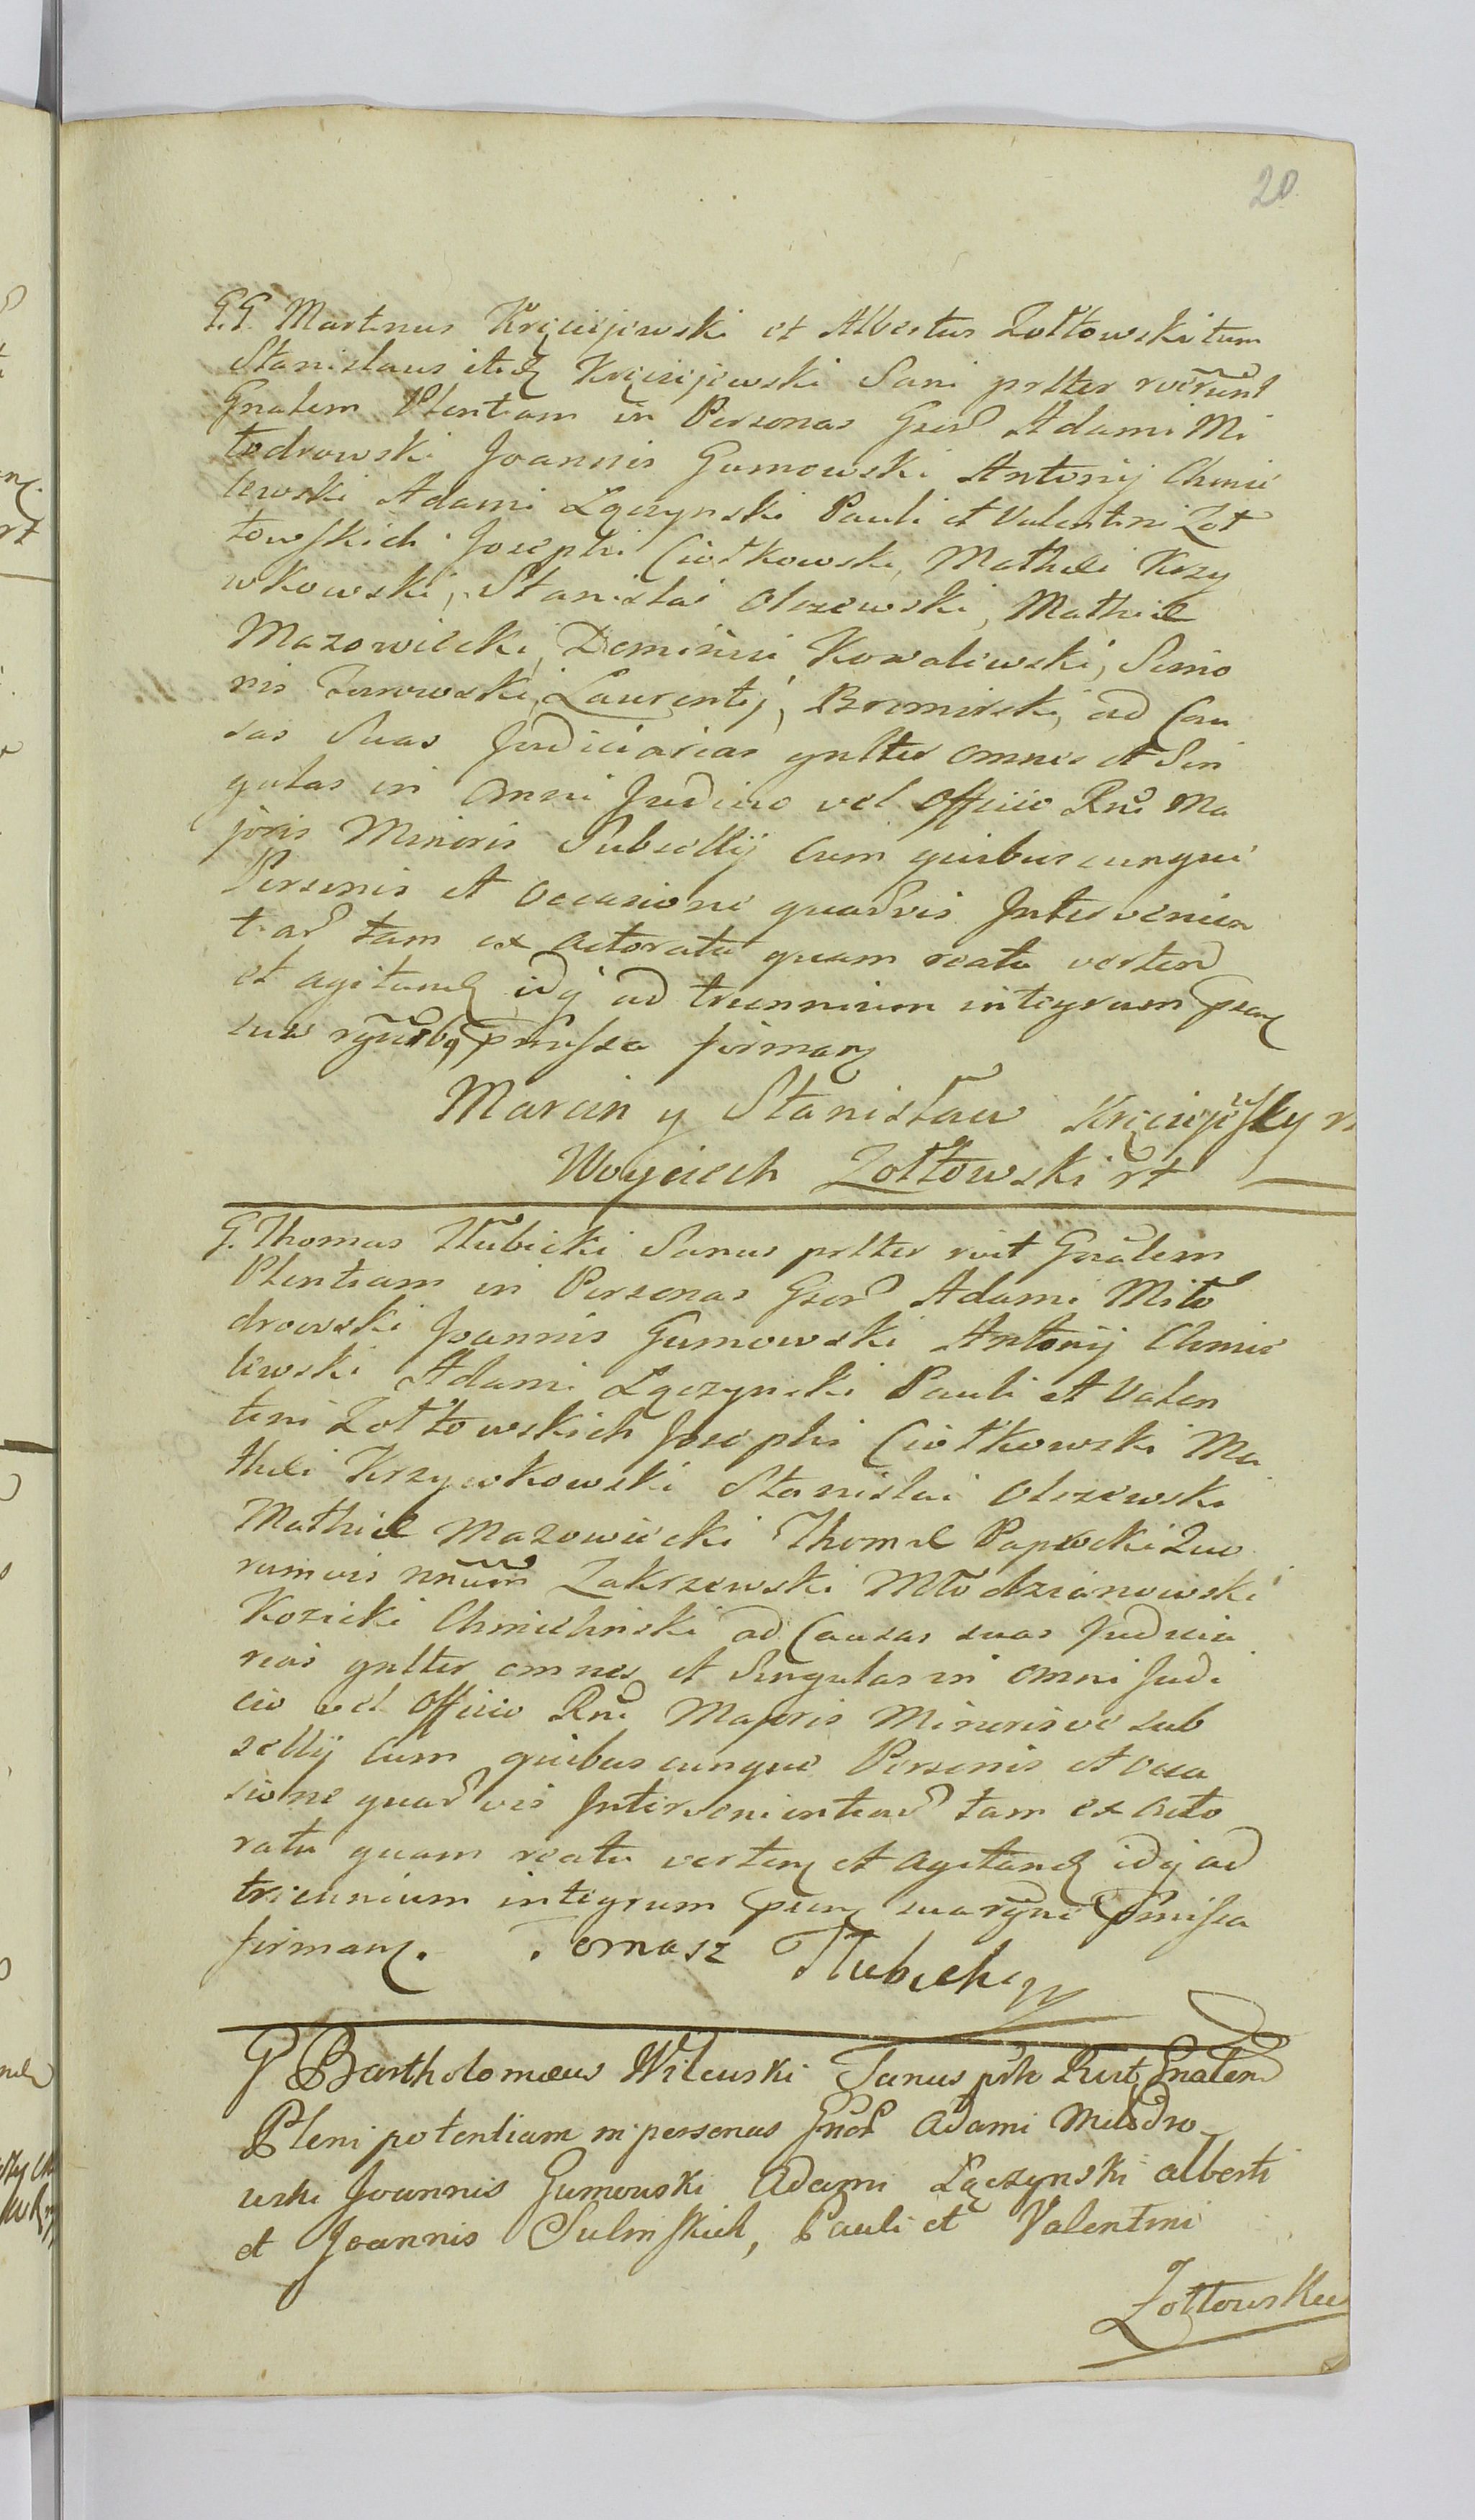 20
G.G. Martinus Kręciejewski et Albertus Zołtowski tum
Stanislaus itidem Kręciejewski Sani prltter rverunt
Gnalem Plentiam in Personas Gsor Adami Mi
łodrowski Joannis Gumowski Antonij Chmie
lewski Adami Łączynski Pauli et Valentini Zoł
towskich Josephi Ciołkowski, Mathei Krzy
wkowski, Stanislai Olszewski, Mathiæ
Mazowiecki, Dominici Kowalewski, Simo
nis Laurentij, Bromirski, ad Cau
sas Suas Judiciarias gnltter omnes et Sin
gulas in Omni Judicio vel Officio Rni Ma
joris Minoris Subsellij Cum quibuscunque
Personis et Occasione quarvis Intervenien
tiar tam ex Actoratu quam reatu verten
et agitand idq ad triennium integrum
sua Pmissa firman
Marcin y Stanisław Kręciejewsky
Woyciech Zołtowski
G. Thomas Hłubicki Sanus prltter rvit Gnalem
Plentiam in Personas Gsor Adami Miło
drowski Joannis Gumowski Antonij Chmie
lewski Adami Łączynski Pauli et Valen
tini Zołtowskich Josephi Ciołkowski Ma
thei Krzywkowski Stanislai Olszewski
Mathiæ Mazowiecki Thomæ Paprocki Quo
rumvis nnum Zakrzewski Młodzianowski
Kozicki Chmielinski ad Causas suas Judicia
rias gnltter omnes et Singulas in omni Judi
cio vel Officio Rni Majoris Minorisve Sub
sellij Cum quibuscunque Personis et Occa
sione quarvis Intervenientiar tam ex Acto
ratu quam reatu verten et Agitand idq ad
triennium integrum sua Pmissa
firman. Tomasz Hłubicki
G Bartholomæus Wilcuski Sanus Rvit Gnalem
Plenipotentiam in personas Gner Adami Miłodro
wski Joannis Gumowski Adami Łączynski Alberti
et Joannis Sulinskich, Pauli et Valentini
Zołtowskich